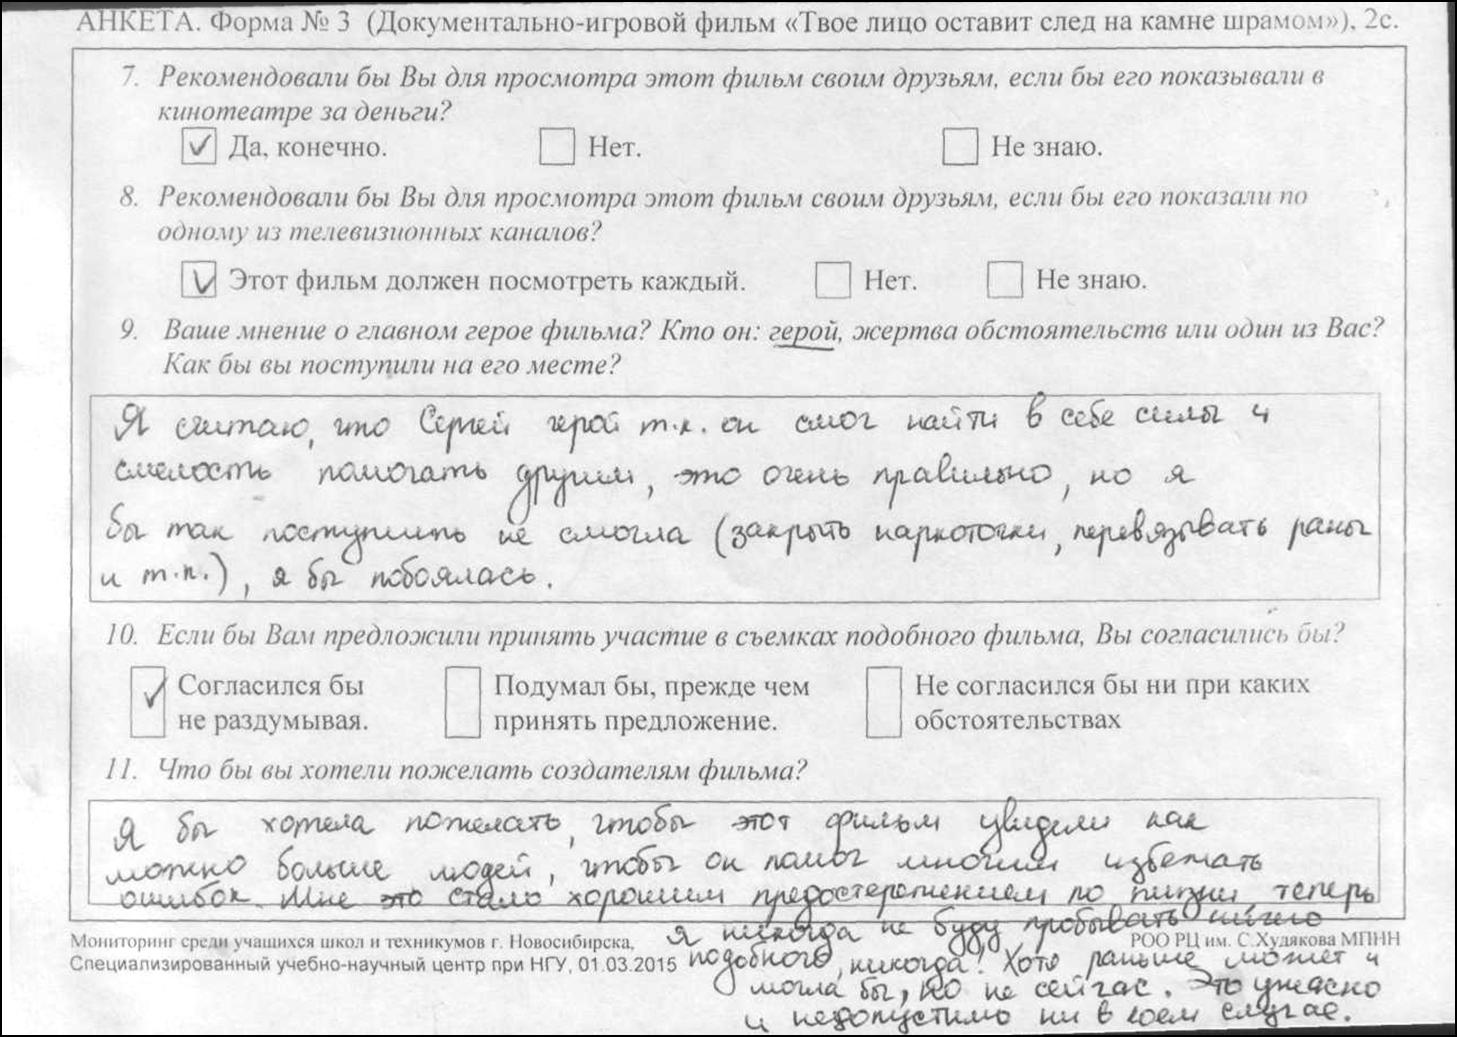 АНКЕТА. Форма № 3 (Документально-игровой фильм «Твое лицо оставит след на камне шрамом»), 2с.
7. Рекомендовали бы Вы для просмотра этот фильм своим друзьям, если бы его показывали в
кинотеатре за деньги?
Да, конечно. Нет. Не знаю.
8. Рекомендовали бы Вы для просмотра этот фильм своим друзьям, если бы его показали по
одному из телевизионных каналов?
Этот фильм должен посмотреть каждый. Нет. Не знаю.
9. Ваше мнение о главном герое фильма? Кто он: герой, жертва обстоятельств или один из Вас?
Как бы вы поступили на его месте?
Я считаю, что Сергей герой т.к. он смог найти в себе силы и
смелость помогать другим, это очень правильно, но я
бы так поступить не смогла (закрыть наркоточки, перевязывать раны
и т.п.), я бы побоялась.
10. Если бы Вам предложили принять участие в съемках подобного фильма, Вы согласились бы?
Согласился бы Подумал бы, прежде чем Не согласился бы ни при каких
не раздумывая. принять предложение. обстоятельствах
11. Что бы вы хотели пожелать создателям фильма?
Я бы хотела пожелать, чтобы этот фильм увидели как
можно больше людей, чтобы он помог многим избежать
ошибок. Мне это стало хорошим предостережением по жизни, теперь
я никогда не буду пробывать ничего
подобного, никогда! Хотя раньше может и
могла бы, но не сейчас. Это ужасно
и недопустимо ни в коем случае.
Мониторинг среди учащихся школ и техникумов г. Новосибирска, РОО РЦ им. С.Худякова МПНН
Специализированный учебно-научный центр при НГУ, 01.03.2015